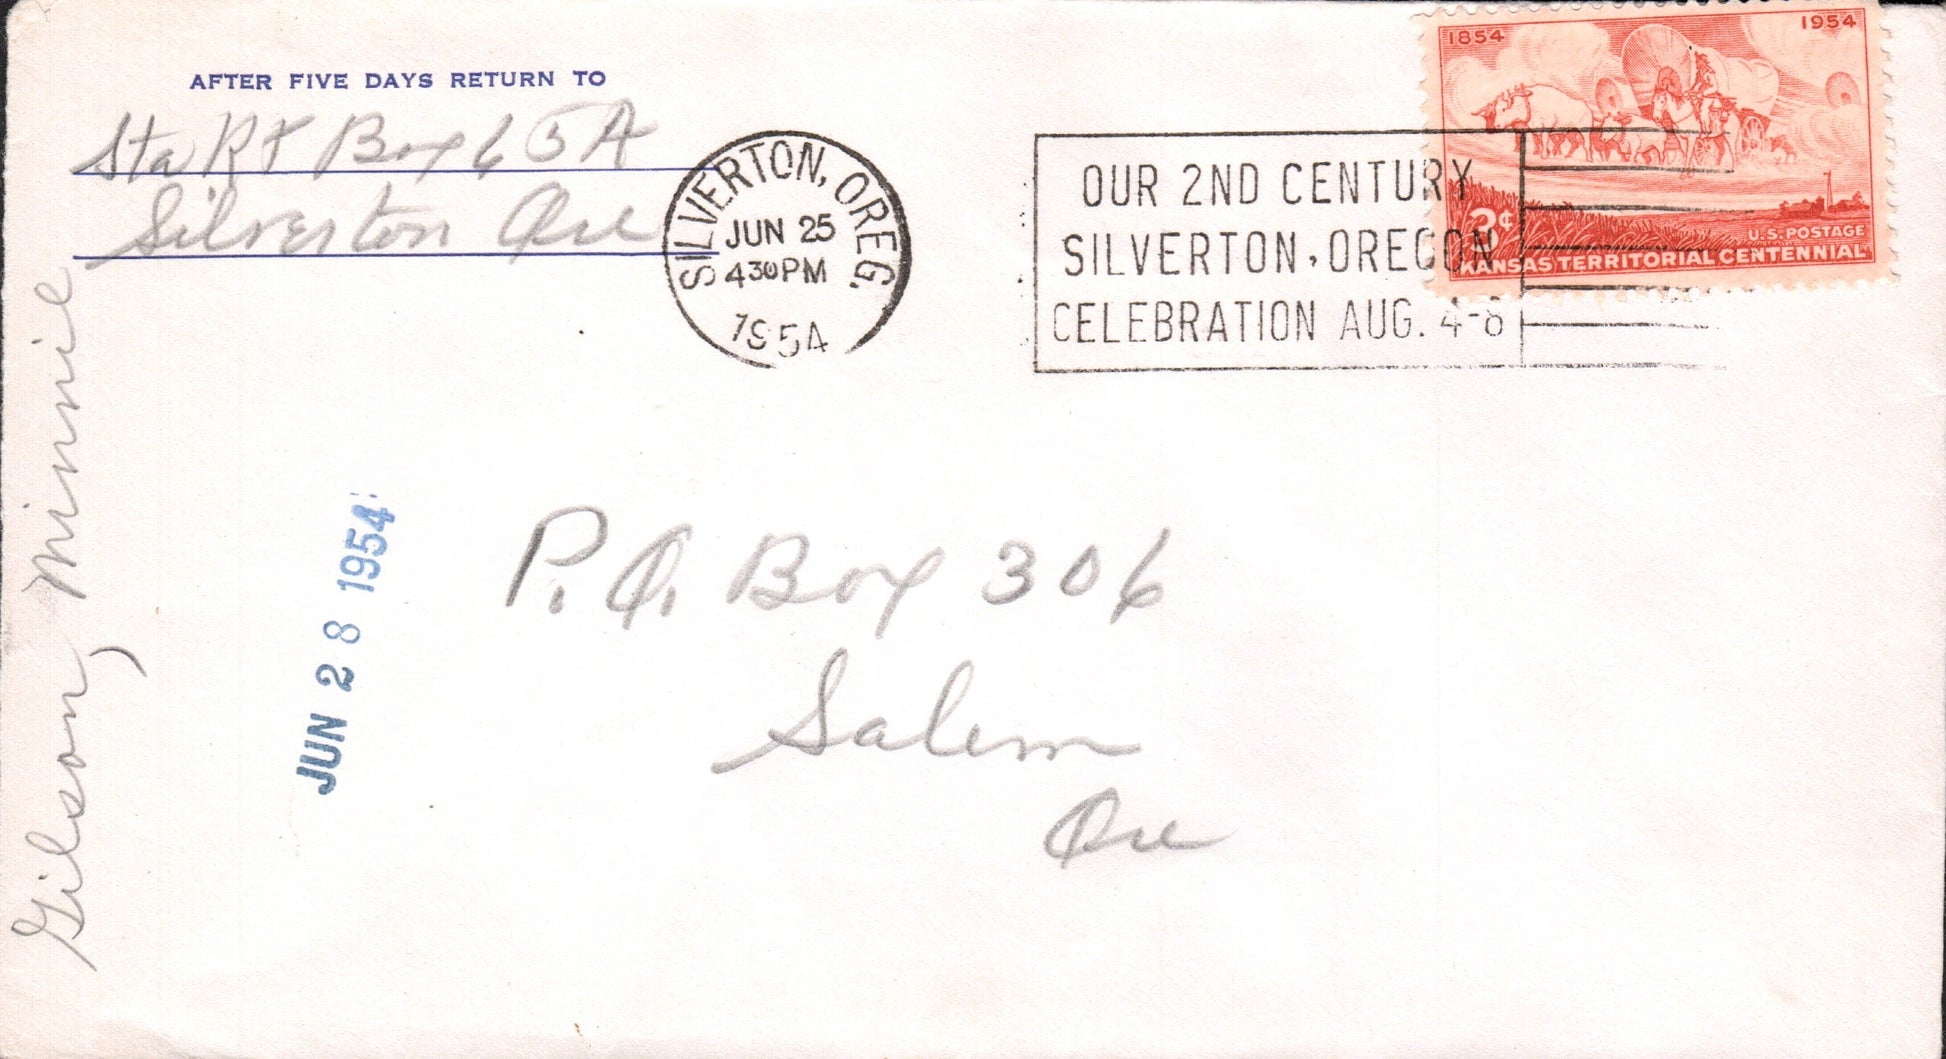 AFTER FIVE DAYS RETURN TO
Sta Rt Box 65A
Silverton Ore
SILVERTON, OREG.
JUN 25
430PM
1954
OUR 2ND CENTURY
SILVERTON, OREGON
CELEBRATION AUG. 4-8
1854 1954
3¢
U.S. POSTAGE
KANSAS TERRITORIAL CENTENNIAL
Gilson, Minnie
JUN 28 1954
P.O. Box 306
Salem
Ore